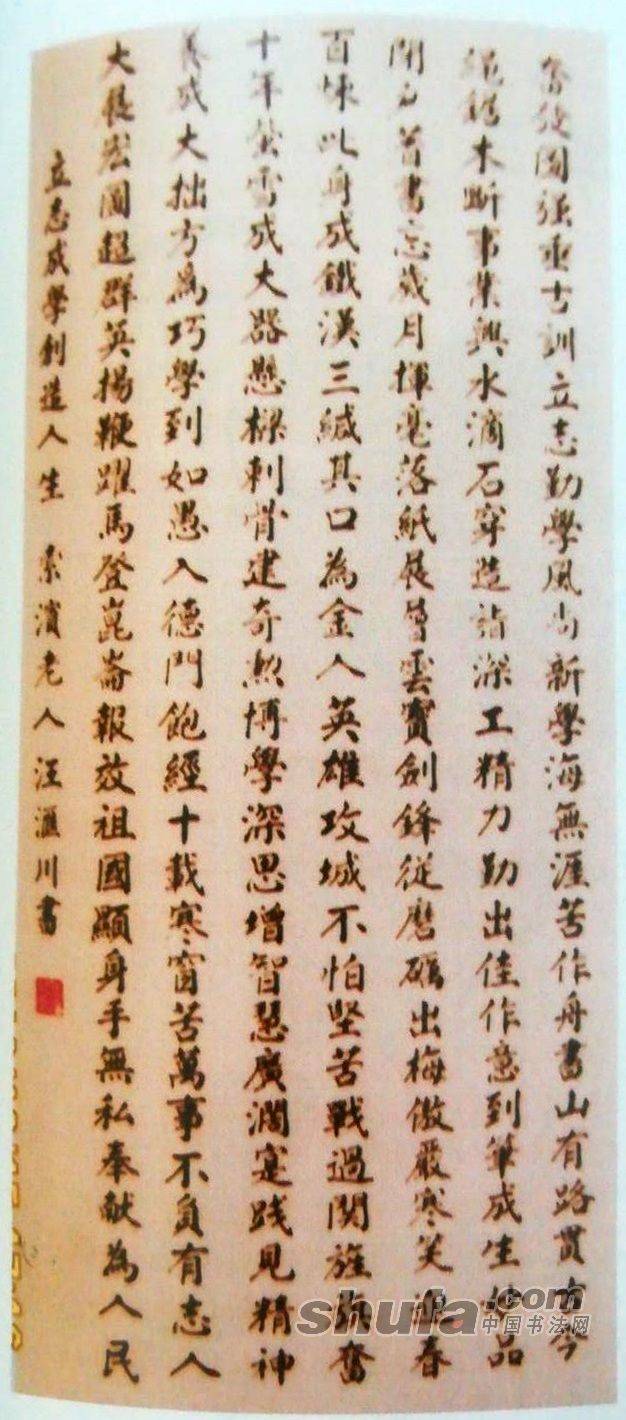 奮發圖強重古訓立志勤學風尚新學海無涯苦作舟書山有路貫古今
繩鋸木斷事業興水滴石穿造詣深工精力勤出佳作意到筆成生妙品
閉户著書忘歲月揮毫落紙展曾雲寶劍鋒從磨礪出梅傲嚴寒笑迎春
百煉此身成鐵漢三緘其口為金人英雄攻城不怕堅苦戰過関旌奮
十年螢雪成大器懸樑刺骨建奇勲博學深思增智慧廣濶寔踐見精神
養成大拙方爲巧學到如愚入德門飽經十載寒窗苦萬事不負有志人
大展宏圖超群英揚鞭躍馬登崑崙報效祖國顯身手無私奉献為人民
立志成學創造人生 索濱老人汪滙川書
shufa.com
中国书法网